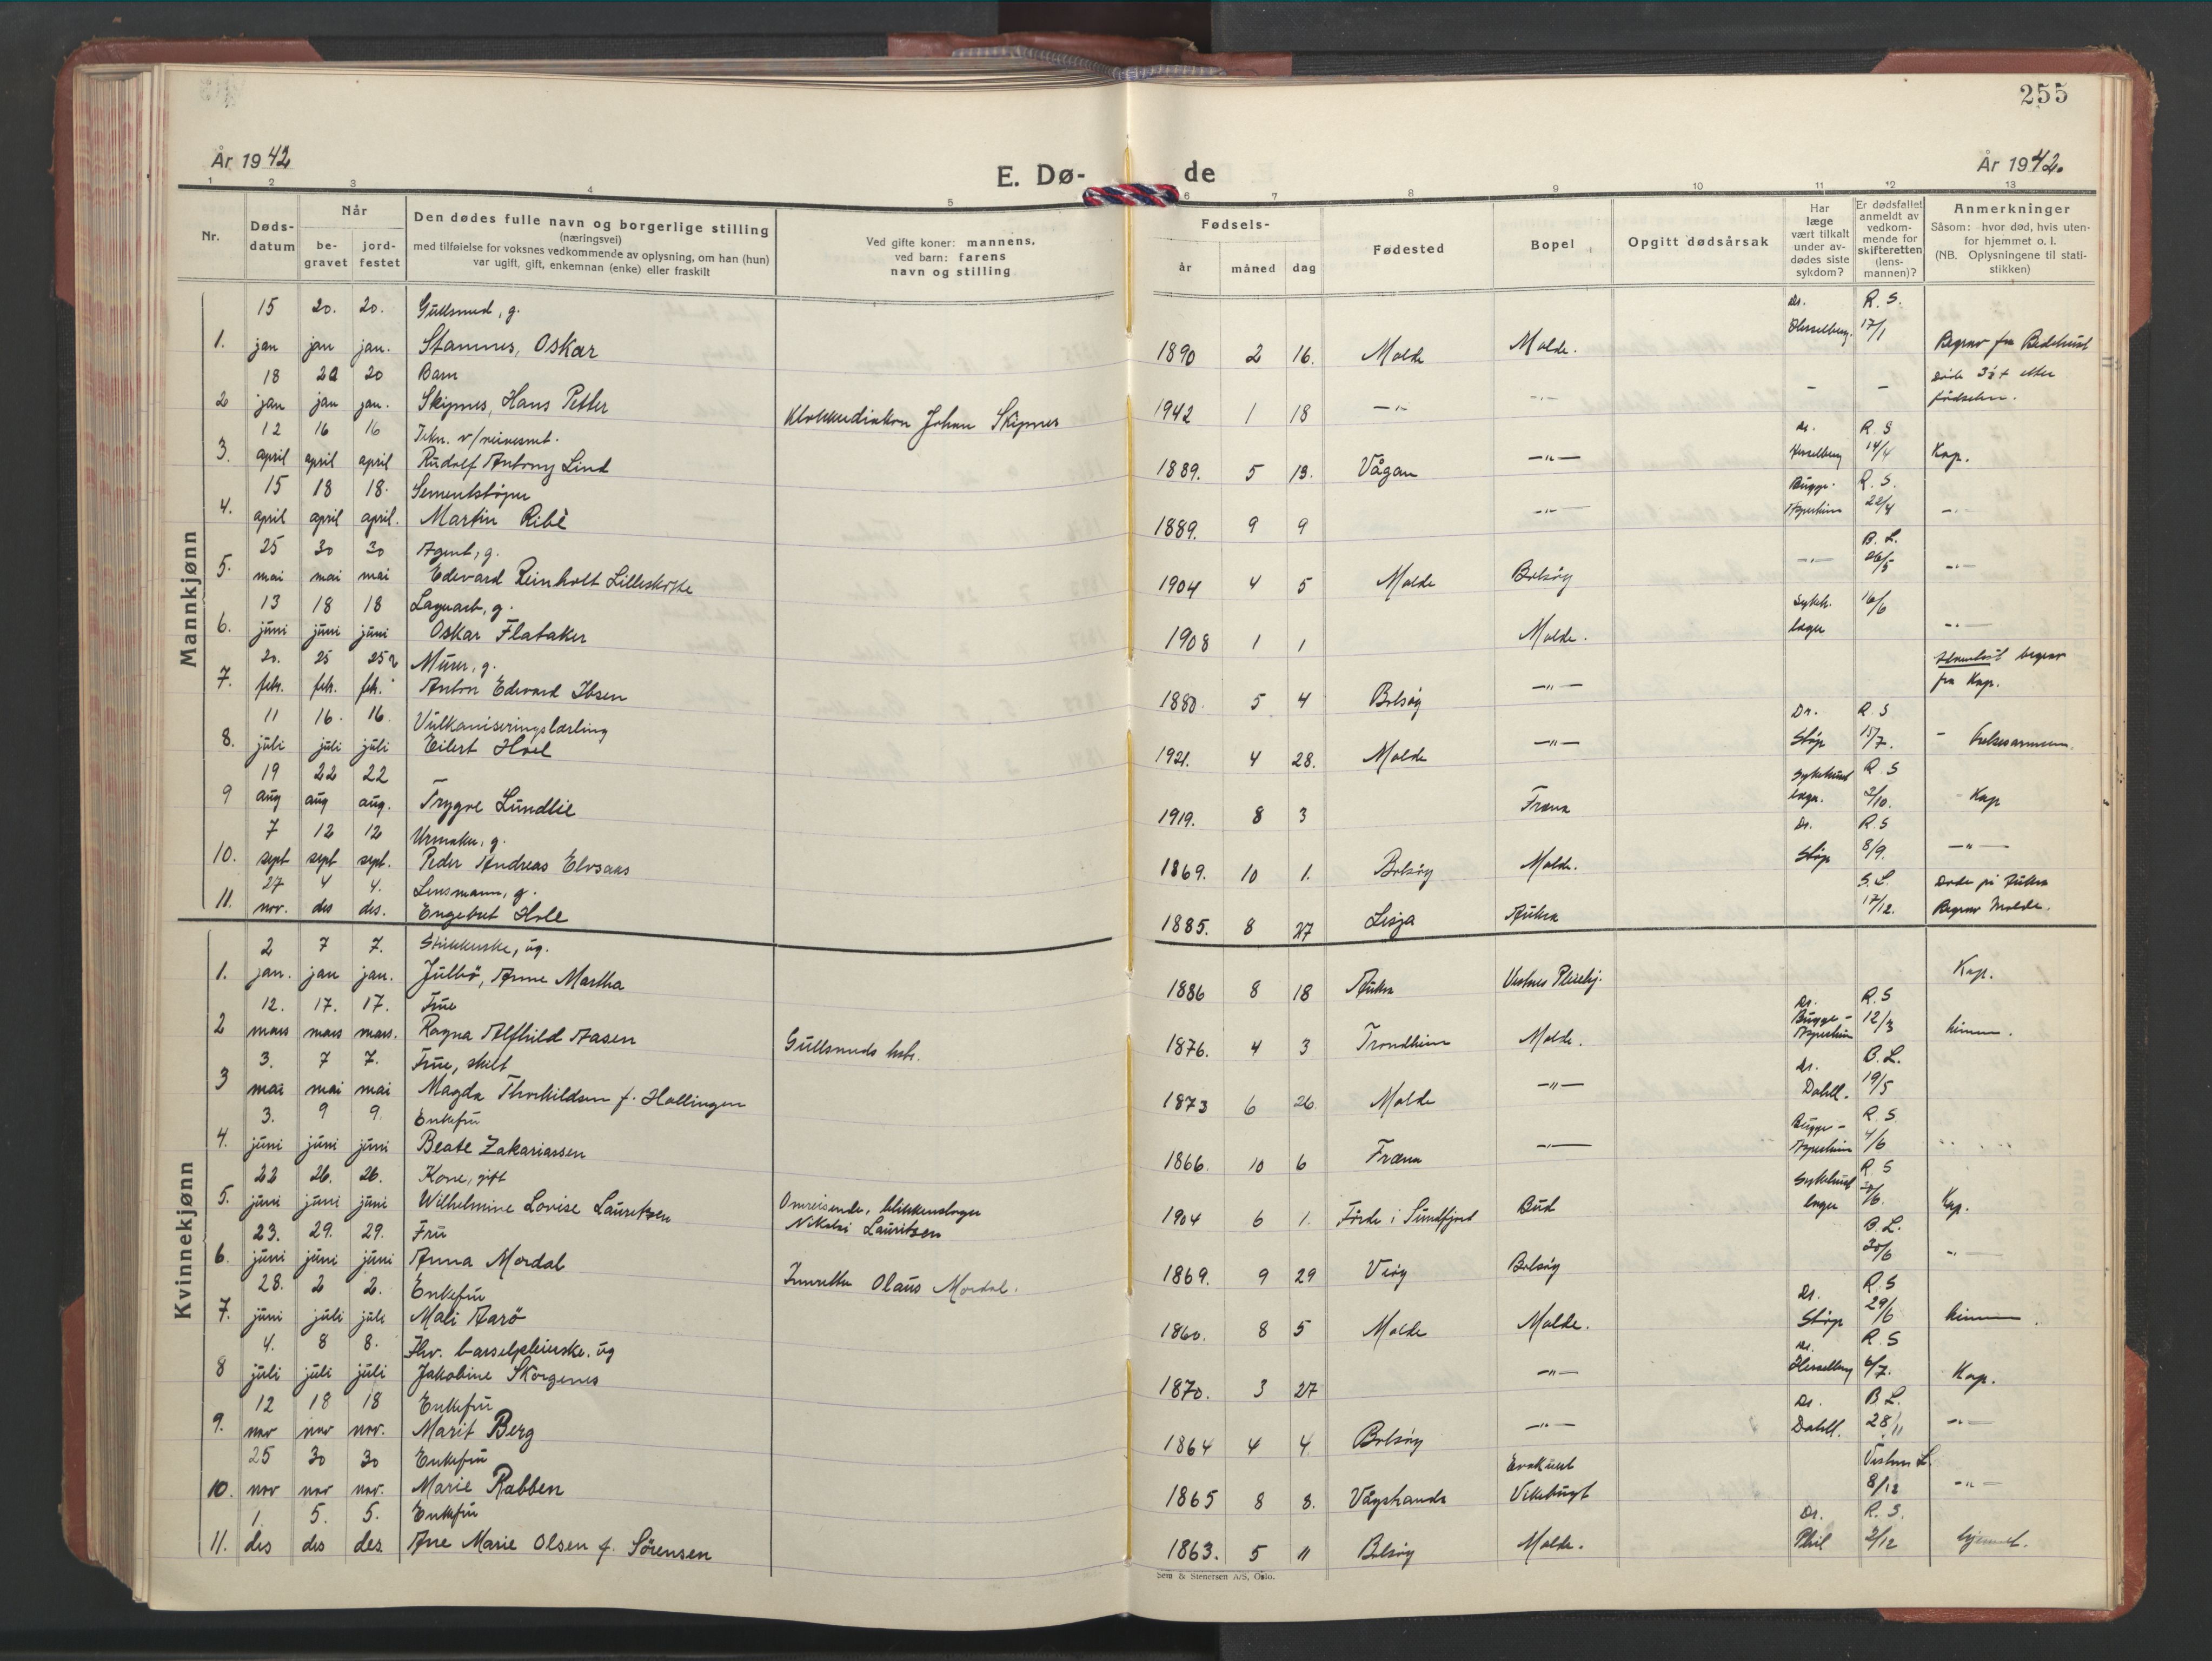 255
År 1942
E. Dø-
de
År 1942.
1 2 3 4 5 6 7 8 9 10 11 12 13
Nr.
Døds-
datum
Når
be-
gravet
jord-
festet
Den dødes fulle navn og borgerlige stilling
(næringsvei)
med tilføielse for voksnes vedkommende av oplysning, om han (hun)
var ugift, gift, enkemnan (enke) eller fraskilt
Ved gifte koner: mannens,
ved barn: farens
navn og stilling
Fødsels-
år måned dag
Fødested
Bopel
Opgitt dødsårsak
Har
læge
vært tilkalt
under av-
dødes siste
sykdom?
Er dødsfallet
anmeldt av
vedkom-
mende for
skifteretten
(lens-
mannen)?
Anmerkninger
Såsom: hvor død, hvis uten-
for hjemmet o. l.
(NB. Oplysningene til stati-
stikken)
Mannkjønn
15 20. 20. Gullsmed, g. Dr. R. S.
1. jan jan jan. Stamnes, Oskar 1890 2 16. Molde Molde. Hesselberg. 17/1 Begrav fra Bedehuset
18 20 20 Barn Døde 3 etter
2 jan jan jan. Skipnes, Hans Petter Klokkerdiakon Johan Skipnes 1942 1 18 —"— —"— – – fødselen.
12 16 16 Dr. R. S
3. april april april Rudolf Antony Lind 1889. 5 13. Vågan —"— Hesselberg 14/4 Kap.
15 18 18. Sementstøper Bugge- R. S.
4. april april april. Martin Ribè 1889. 9 9 —"— 22/4 —"—
25 30 30 Agent, g. B. L.
5. mai mai mai Edevard Reinholt Lilleskiste 1904 4 5 Molde Bolsøy —"— 26/5 —"—
13 18 18 Lagerarb, g. Sykeh. 16/6
6. juni juni juni Oskar Flataker 1908 1 1 Molde. læger —"—
20. 25 25 Murer, g. begrav
7. feb. feb. feb. Anton Edevard Ibsen 1880 5 4 Bolsøy —"— fra Kap.
11 16. 16. Vulkaniseringslærling Dr. R. S
8. juli juli juli Eilert Hoel 1921. 4 28. Molde —"— Støp 15/7. – Frelsesarmeen.
19 22 22 Sykehuset R. S
9 aug aug aug. Trygve Lundlie 1919. 8 3 Fræna læger. 2/10. – Kap
7 12 12 Urmaker, g. Dr. R. S
10. sept sept sept. Peder Andreas Elvsaas 1869. 10 1. Bolsøy Molde. Støp 8/9. —"—
27 4 4. Lensmann, g. S. L. Døde på Aukra
11. nov. des des. Engebret Hole 1885. 8 27 Lesja Aukra 17/12. Begrav Molde.
Kvinnekjønn
2 7 7. Strikkerske, ug.
1. jan. jan jan. Julbø, Anne Martha 1886 8 18 Aukra Vestnes Pleiehj. Kap.
12. 17. 17. Frue Dr. R. S
2 mars mars mars. Ragna Alfhild Aasen Gullsmeds 1876. 4 3 Trondheim Molde. Bugge- 12/3 hjemm.
3. 7 7. Frue, skilt Dr. B. L.
3 mai mai mai Magda Thorkildsen f. Hollingen 1873 6 26. Molde —"— Dahll. 19/5
3. 9 9. Enkefru Bugge- R. S.
4. juni juni juni Beate Zakariassen 1866. 10 6 Fræna —"— 4/6
22 26. 26. Kone, gift Sykehuset R. S
5. juni juni juni Wilhelmine Lovise Lauritzen Omreisende, blikkenslager 1904 6 1. Førde i Sundfjord Bud læger /6. Kap.
Nikolai Lauritzen
23. 29. 29. Fru B. L.
6. juni juni juni Anna Mordal Olaus Mordal. 1869. 9 29 Veøy Bolsøy 30/6 —"—
28. 2 2. Enkefru Dr. R. S
7. juni juli juli Mali Aarø 1860. 8 5 Molde Molde. Støp 29/6 hjemme
4. 8 8. Fhv. barselpleierske. ug Dr. R. S
8 juli juli juli Jakobine Skorgenes 1870. 3 27 —"— Hesselberg 6/7. Kap.
12 18 18 Enkefru Dr. B. L.
9. nov nov nov. Marit Berg 1864 4 4. Bolsøy —"— Dahll. 28/11 —"—
25 30 30 Enkefru Evakuert Vestnes L.
10. nov nov nov. Marie Rabben 1865 8 8. Vågstranda Vikebugt 8/12 —"—
1. 5. 5. Enkefru Dr. R. S.
11. des des des Ane Marie Olsen f. Sörensen 1863. 5 11 Bolsøy Molde. Phil 2/12 hjemmet.
Sem & Stenersen A/S, Oslo.